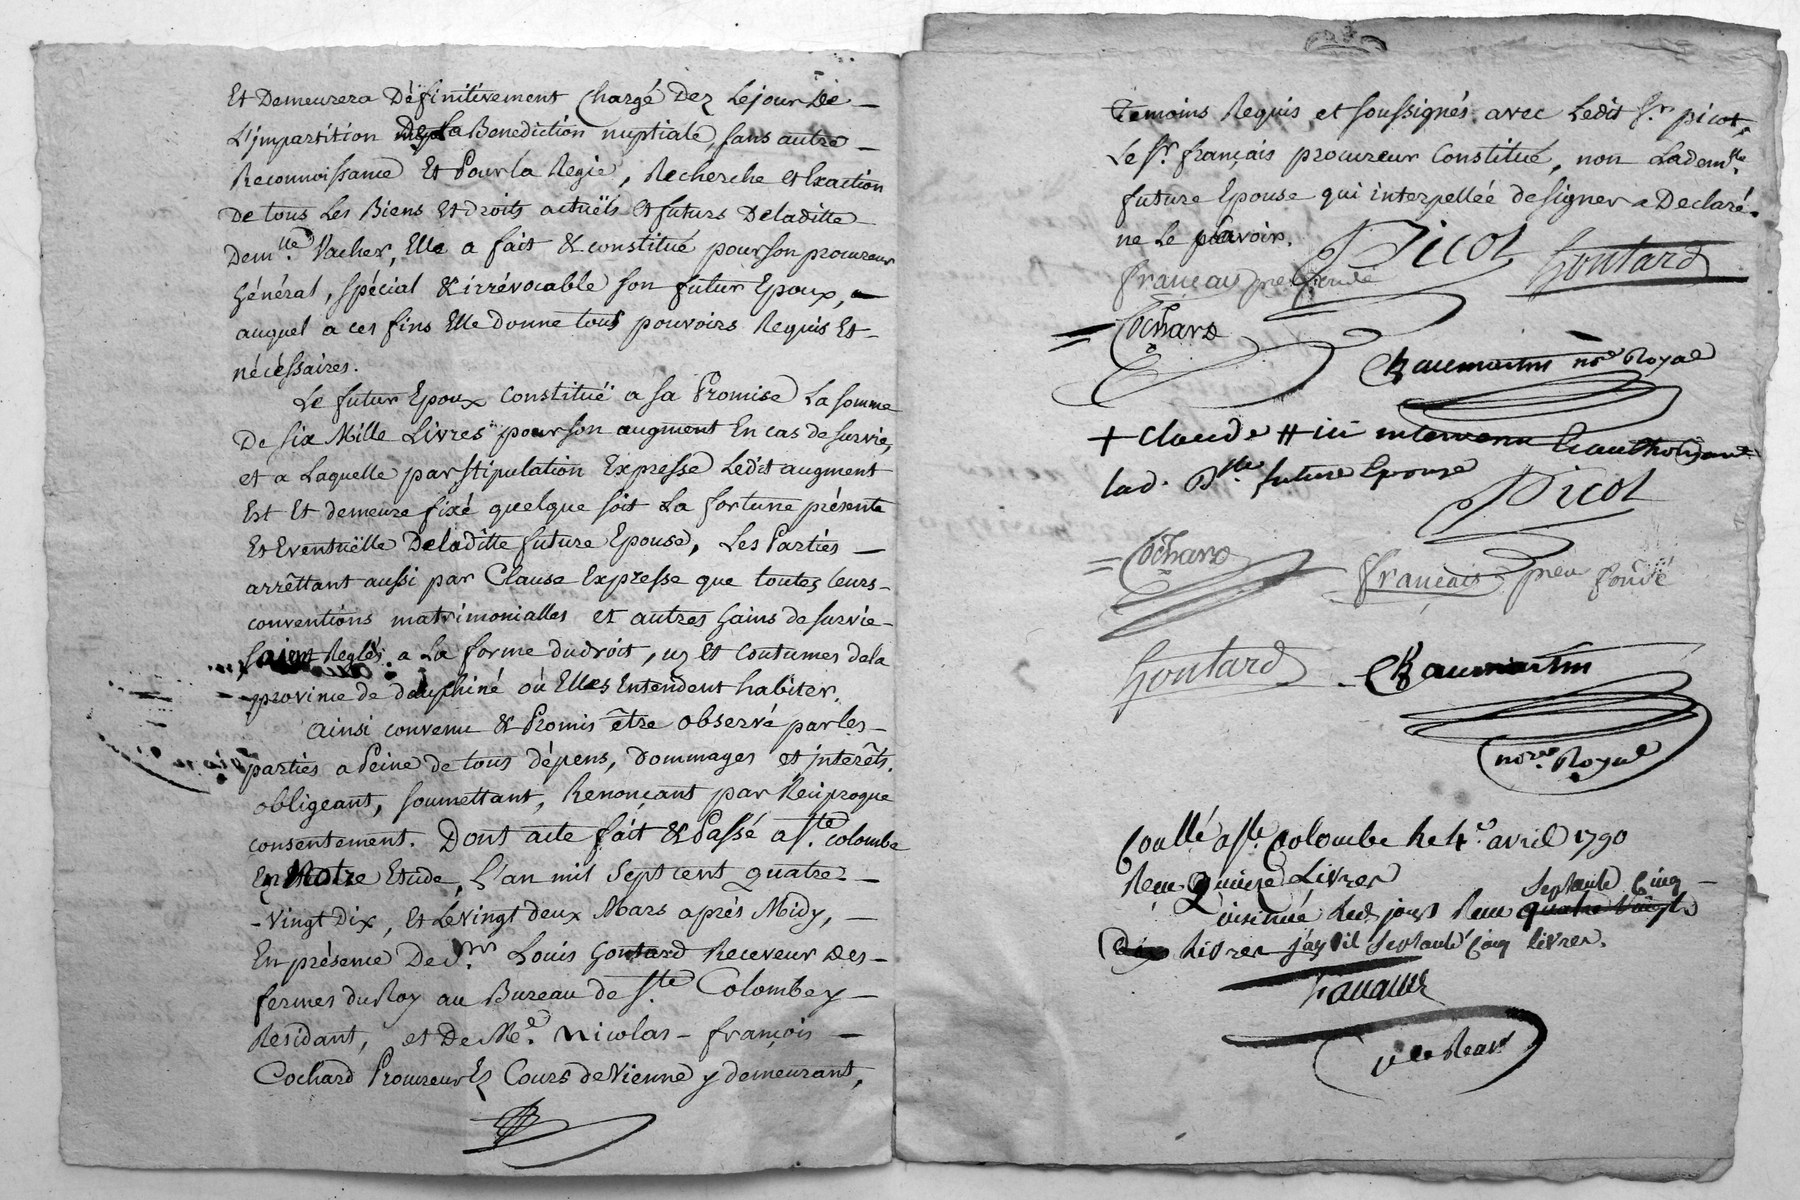 Et Demeurera Définitivement Chargé Dez Lejour De
L'impartition De La Benediction nuptiale, sans autre
Reconnoissance Et Pour la Regie, Recherche et Exaction
De tous Les Biens Et droits actuëls et futurs Deladitte
Dem.lle Vacher, Elle a fait & constitué pour son procureur
Général, spécial & irrévocable son futur Epoux,
auquel a ces fins Elle donne tous pouvoirs Requis Et
nécéssaires.
Le futur Epoux constituë a sa Promise La somme
De Six Mille Livres pour son augment En cas de survie,
et a Laquelle par stipulation Expresse Ledit augment
Est Et demeure fixé quelque soit La fortune présente
Et Eventuëlle Deladitte future Epouse, Les Parties
arrêttant aussi par Clause Expresse que toutes leurs
conventions matrimonialles et autres Gains de survie
soient Reglés a La forme du droit, us Et Coutumes dela
province de dauphiné où Elles Entendent habiter.
Ainsi convenu & Promis être observé par les
parties a Peine de tous dépens, Dommages et intérêts.
obligeant, soumettant, Renonçant par Réciproque
consentement. Dont acte fait & Passé a Ste. Colombe
En Notre Etude, L'an mil sept cent quatre
-vingt Dix, Et Le vingt deux Mars aprés Midy,
En présence De Louis Goutard Receveur Des
fermes du Roy au Bureau de Ste Colombe y
Residant, et De Me. Nicolas - françois
Cochard Procureur Es Cours de Vienne y demeurant,
Temoins Requis et soussignés avec Ledit Sr. picot,
Le Sr. français procureur Constitué, non Ladem.lle
future Epouse qui interpellée de signer a Declaré
ne Le sçavoir. Picot Goutard
français preu fondé
Cochard
Chaumartin nre Royal
+ Claude # ici intervenu Et authorisant
lad. Dlle. future Epouse
Picot
Cochard français preu fondé
Goutard Chaumartin
nore. Royal
Conllé a Ste. Colombe Le 4e. avril 1790
Reçu quinze Livres
septante Cinq
Insinué Led. jour Reçu quatre vingt
Dix Livres septante Cinq livres.